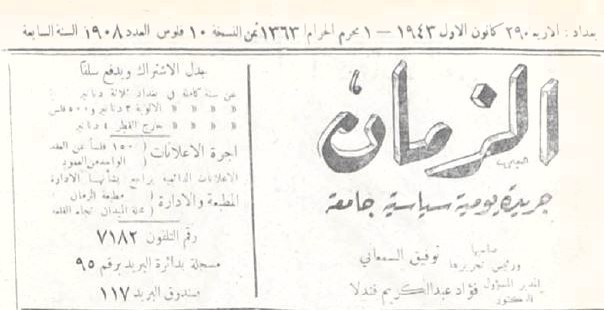 بغداد : الاربعاء ٢٩ كانون الاول ١٩٤٣ — ١ محرم الحرام ١٣٦٣ ثمن النسخة ١٠ فلوس العدد ١٩٠٨ السنة السابعة
الزمان
جريدة يومية سياسية جامعة
صاحبها
ورئيس تحريرها توفيق السمعاني
المدير المسؤول فؤاد عبدالكريم قندلا
الدكتور
بدل الاشتراك ويدفع سلفا
عن سنة كاملة في بغداد ثلاثة دنانير
» » » الالوية ٣ دنانير و ٥٠٠ فلس
» » » خارج القطر ٤ دنانير
اجرة الاعلانات ( ١٥٠ فلسا عن العقد
الواحد من العمود
الاعلانات الدائمية يراجع بشأنها الادارة
المطبعة والادارة ( مطبعة الزمان
محلة الميدان تجاه القلعة
رقم التلفون ٧١٨٢
مسجلة بدائرة البريد برقم ٩٥
صندوق البريد ١١٧